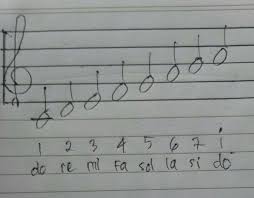 1 2 3 4 5 6 7 i
do re mi Fa sol la si do